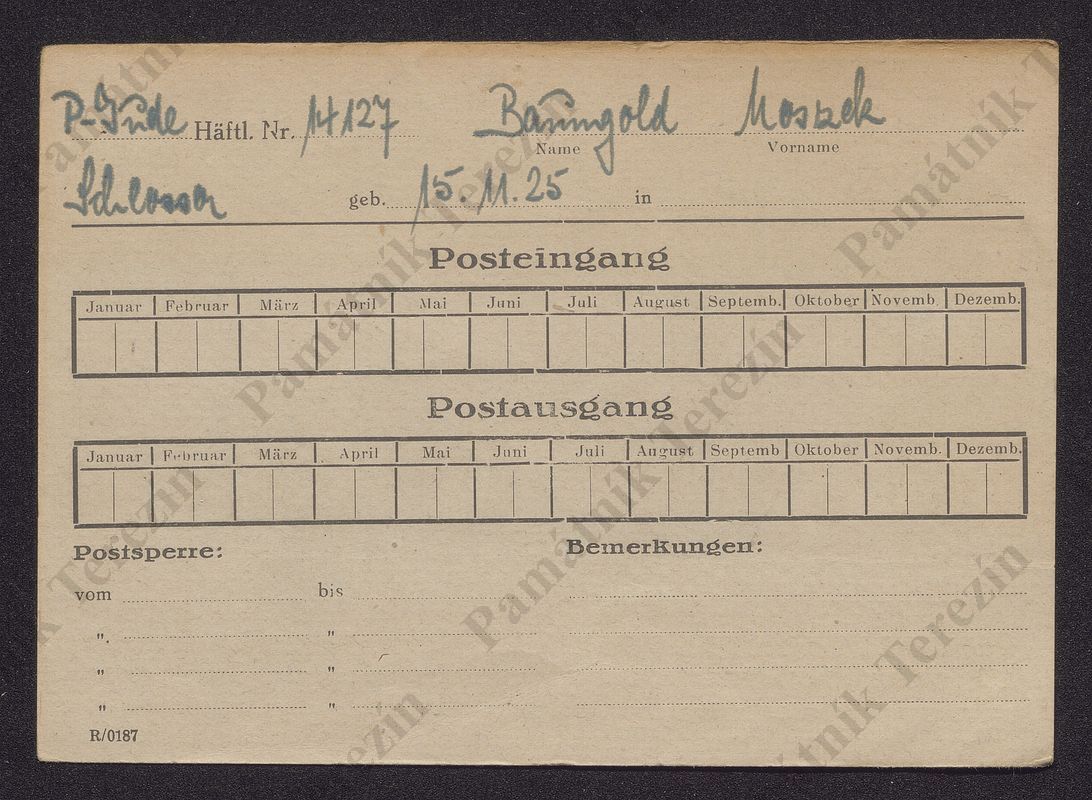 P-Jude Häftl. Nr. 14127 Baumgold Moszek
Name Vorname
Schlosser geb. 15.11.25 in
Posteingang
Januar Februar März April Mai Juni Juli August Septemb. Oktober Novemb. Dezemb.
Postausgang
Januar Februar März April Mai Juni Juli August Septemb Oktober Novemb. Dezemb.
Postsperre: Bemerkungen:
vom bis
". "
" "
" "
R/0187
Památník Terezín
Památník Terezín
Památník Terezín
Památník Terezín